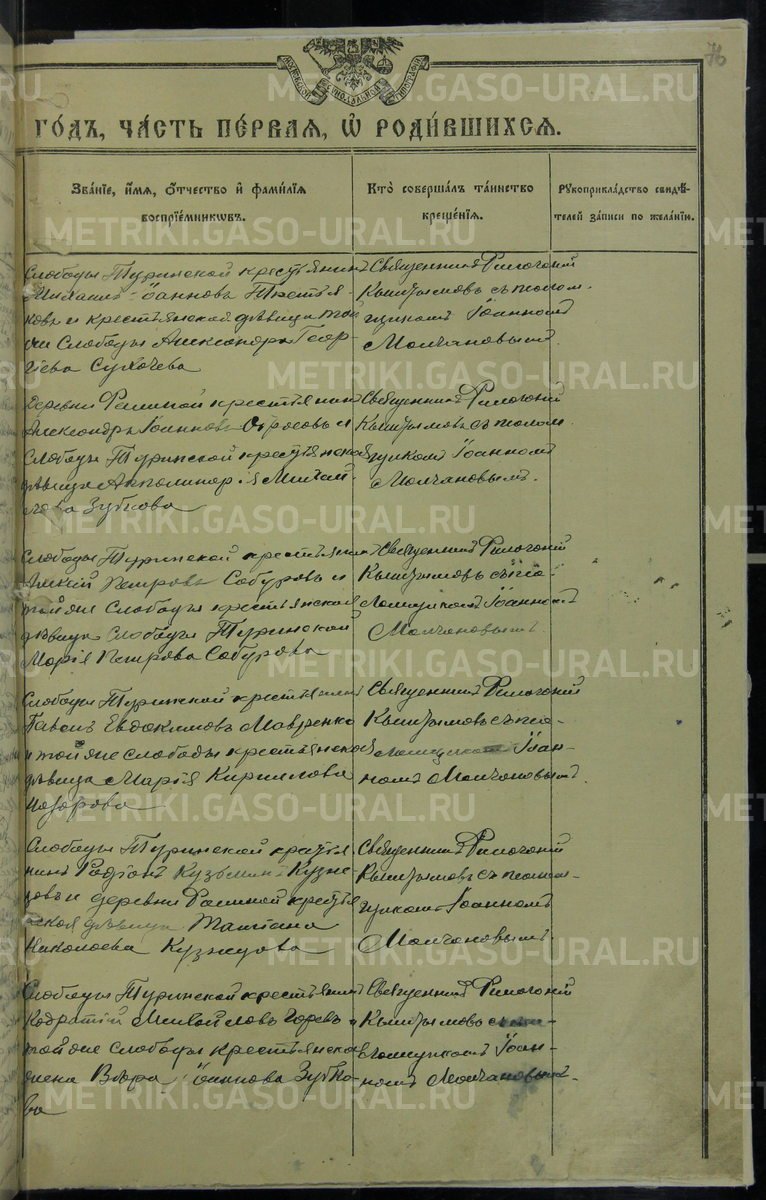 76
МОСКОВСКОЙ СИНОДАЛЬНОЙ ТИПОГРАФІИ
ГОДЪ, ЧАСТЬ ПЕРВАЯ, Ѡ РОДИВШИХСЯ.
Званіе, имя, отчество и фамилія воспріемниковъ.
Кто совершалъ таинство крещенія.
Рукоприкладство свидѣтелей записи по желанію.
Слободы Туринской крестьянинъ
Михаилъ Іоанновъ Третья-
ковъ и крестьянская дѣвица той
же Слободы Александра Геор-
гіева Сухочева
Священникъ Филогоній
Кыштымовъ съ псалом-
щикомъ Іоанномъ
Молчановымъ.
Деревни Фалиной крестьянинъ
Александръ Іоанновъ и
Слободы Туринской крестьянская
дѣвица Аполинарія Михай-
лова Зубкова
Священникъ Филогоній
Кыштымовъ съ псалом-
щикомъ Іоанномъ
Молчановымъ.
Слободы Туринской крестьянинъ
Алексій Петровъ Собуровъ и
той же Слободы крестьянская
дѣвица Слободы Туринской
Марія Петрова Собурова
Священникъ Филогоній
Кыштымовъ съ пса-
ломщикомъ Іоанномъ
Молчановымъ.
Слободы Туринской крестьянинъ
Павелъ Евдокимовъ Мавренко
и той же слободы крестьянская
дѣвица Марія Кириллова
Назарова
Священникъ Филогоній
Кыштымовъ съ пса-
ломщикомъ Іоан-
номъ Молчановымъ.
Слободы Туринской крестья-
нинъ Родіонъ Кузьминъ Кузне-
цовъ и деревни Фалиной крестья-
нская дѣвица Татіана
Николаева Кузнецова
Священникъ Филогоній
Кыштымовъ съ псалом-
щикомъ Іоанномъ
Молчановымъ.
Слободы Туринской крестьянинъ
Кодратій Михайловъ и
той же слободы крестьянская
жена Вѣра Іоаннова Зубко-
ва
Священникъ Филогоній
Кыштымовъ съ пса-
ломщикомъ Іоан-
номъ Молчановымъ.
METRIKI.GASO-URAL.RU